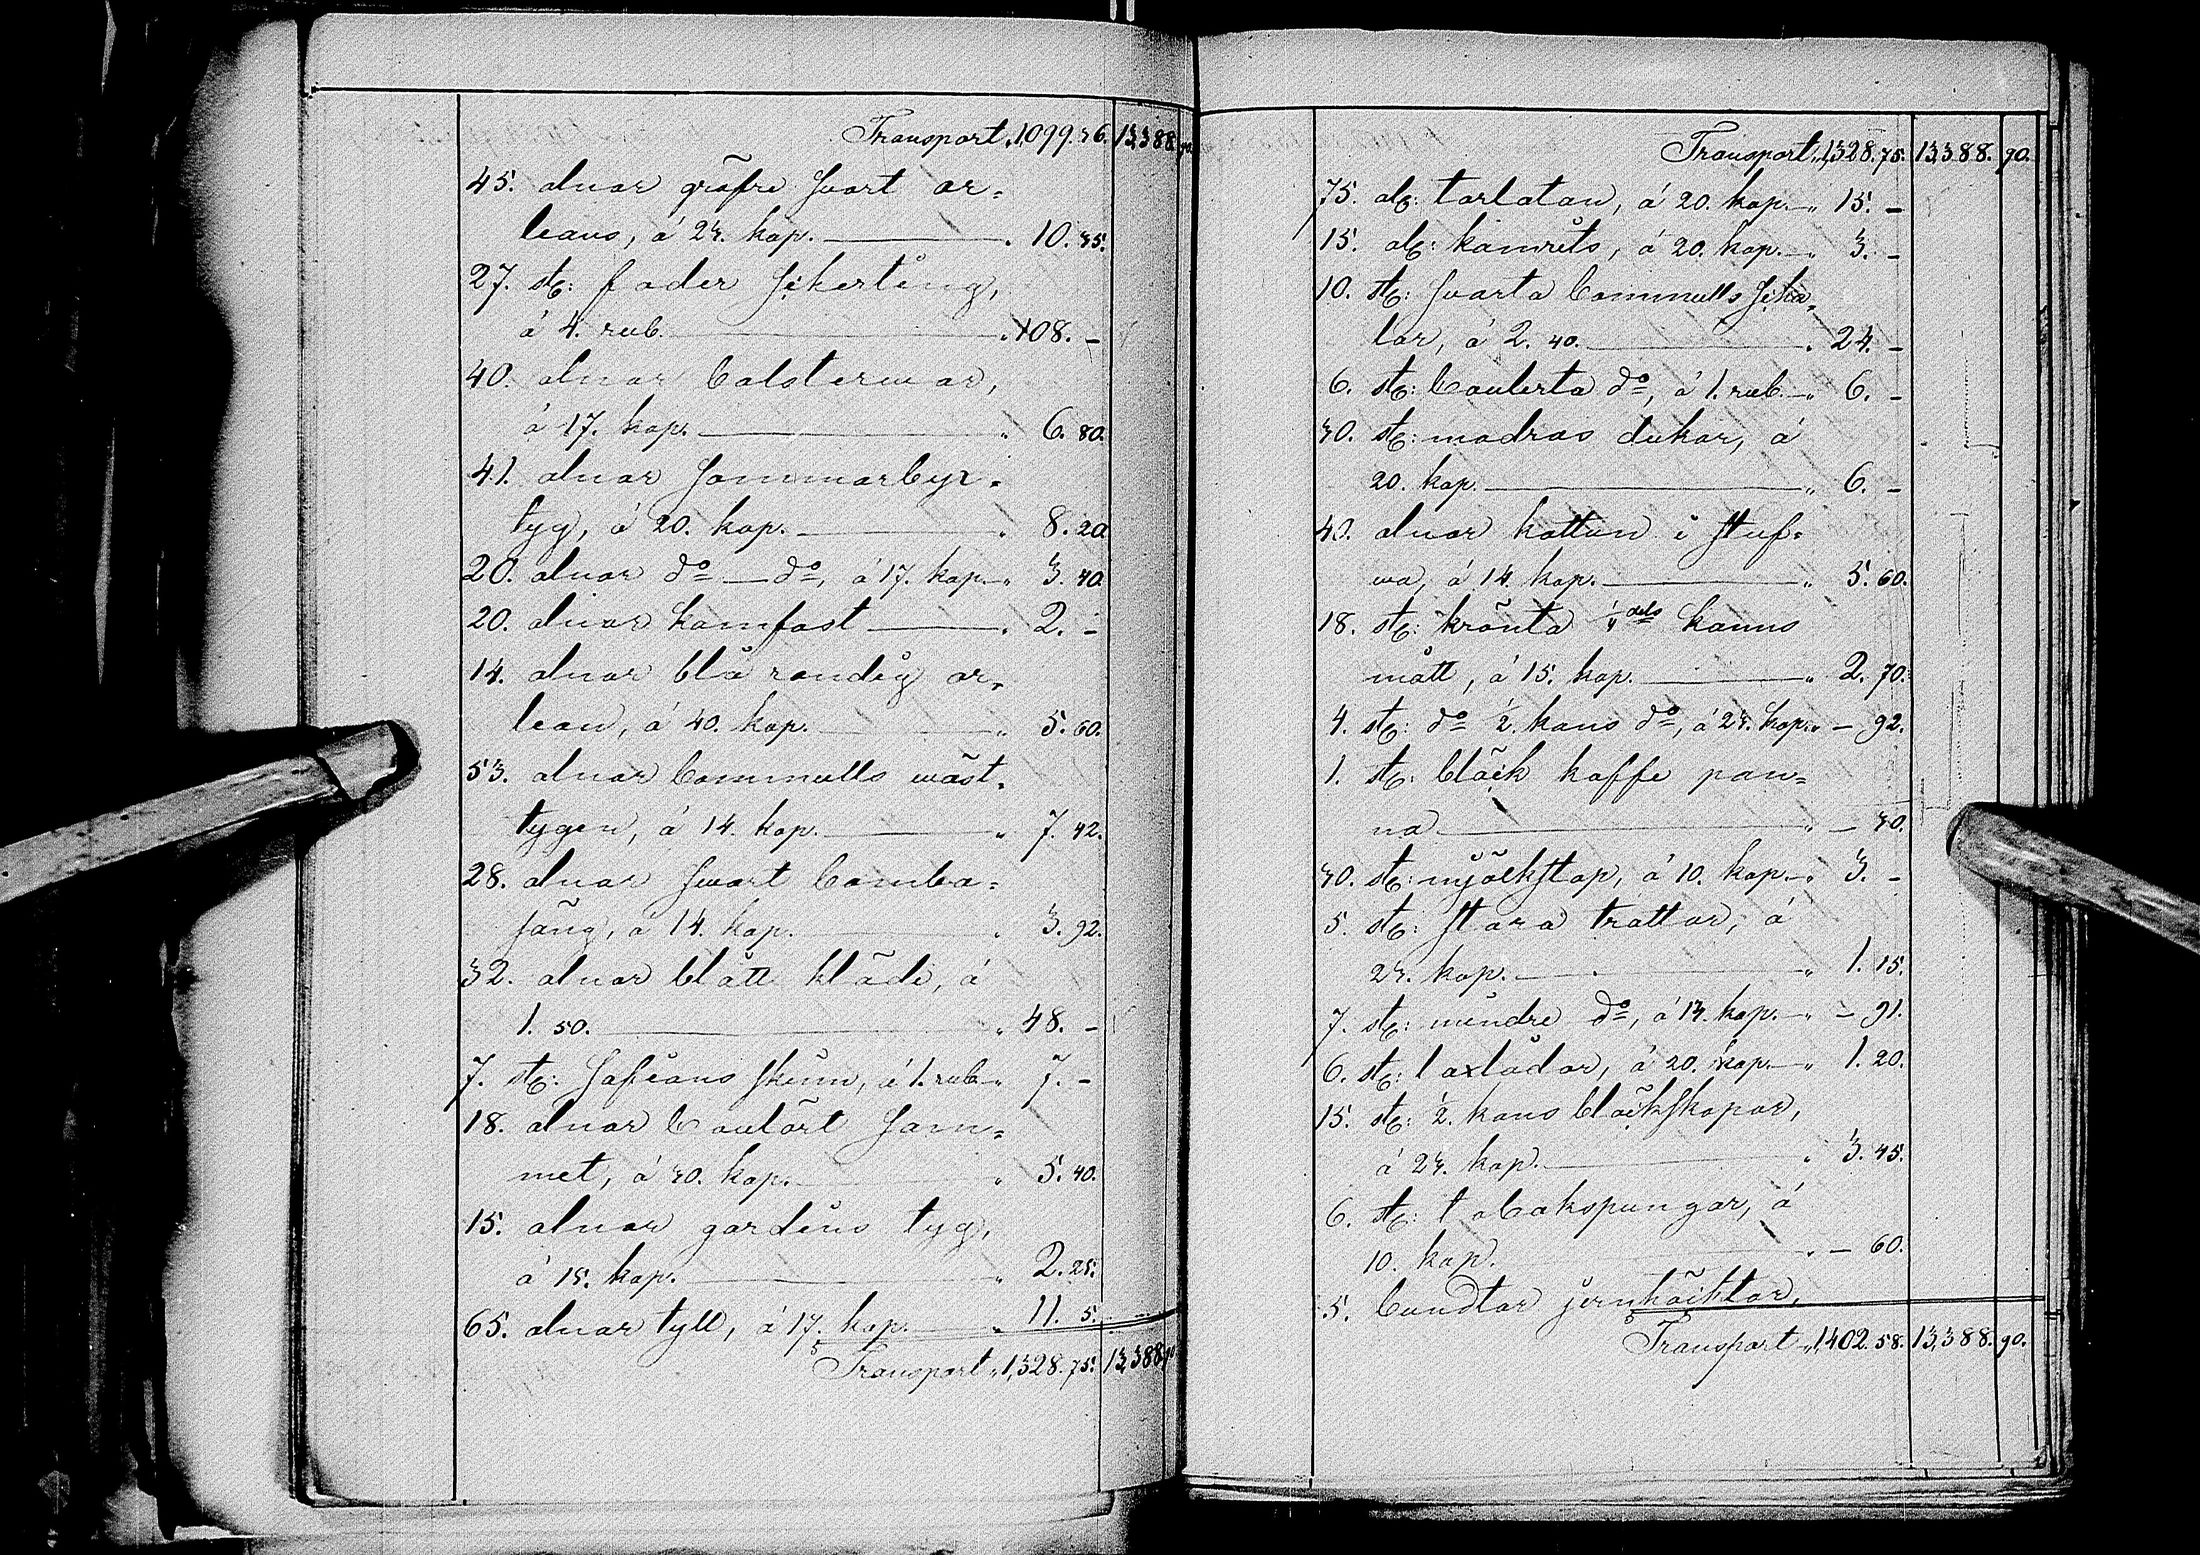 Transport „ 1,099. 36. 13,388. 90.
45. alnar gröfre svart or-
leans, á 23. kop. „ 10. 35.
27. st: foder sikerting,
á 4. rub. „ 108. –
40. alnar bolsterwar,
á 17. kop. „ 6. 80.
41. alnar sommarbyx-
tyg, á 20. kop. „ 8. 20.
20. alnar do – do, á 17. kop. „ 3. 40.
20. alnar kamfast „ 2. –
14. alnar blå randig or-
lean, á 40. kop. „ 5. 60.
53. alnar bommulls wäst-
tygen, á 14. kop. „ 7. 42.
28. alnar svart bomba-
säng, á 14. kop. „ 3. 92.
32. alnar blått kläde, á
1. 50. „ 48. –
7. st: safians skinn, á 1. rub. „ 7. –
18. alnar coulört sam-
met, á 30. kop. „ 5. 40.
15. alnar gardins tyg,
á 15. kop. „ 2. 25.
65. alnar tyll, á 17. kop. „ 11. 5.
Transport „ 1,328. 75. 13,388. 90.
Transport „ 1,328. 75. 13,388. 90.
75. al: tarlatan, á 20. kop. „ 15. –
15. al: kamrets, á 20. kop. „ 3. –
10. st: svarta bommulls scha-
lar, á 2. 40. „ 24. –
6. st: coulerta do, á 1. rub. „ 6. –
30. st: madras dukar, á
20. kop. „ 6. –
40. alnar kattun i stuf-
wa, á 14. kop. „ 5. 60.
18. st: krönta 1/4 dels kanns
mått, á 15. kop. „ 2. 70.
4. st: do 1/2. kans do, á 23. kop. „ – 92.
1. st: bläck kaffe pan-
na „ – 30.
30. st: mjölkstop, á 10. kop. „ 3. –
5. st: stora trattar, á
23. kop. „ 1. 15.
7. st: mindre do, á 13. kop. „ – 91.
6. st: laxlådor, á 20. kop. „ 1. 20.
15. st: 1/2. kans bläckskopor,
á 23. kop. „ 3. 45.
6. st: tobakspungar, á
10. kop. „ – 60.
5. bundtar jernhäcktor,
Transport „ 1,402. 58. 13,388. 90.